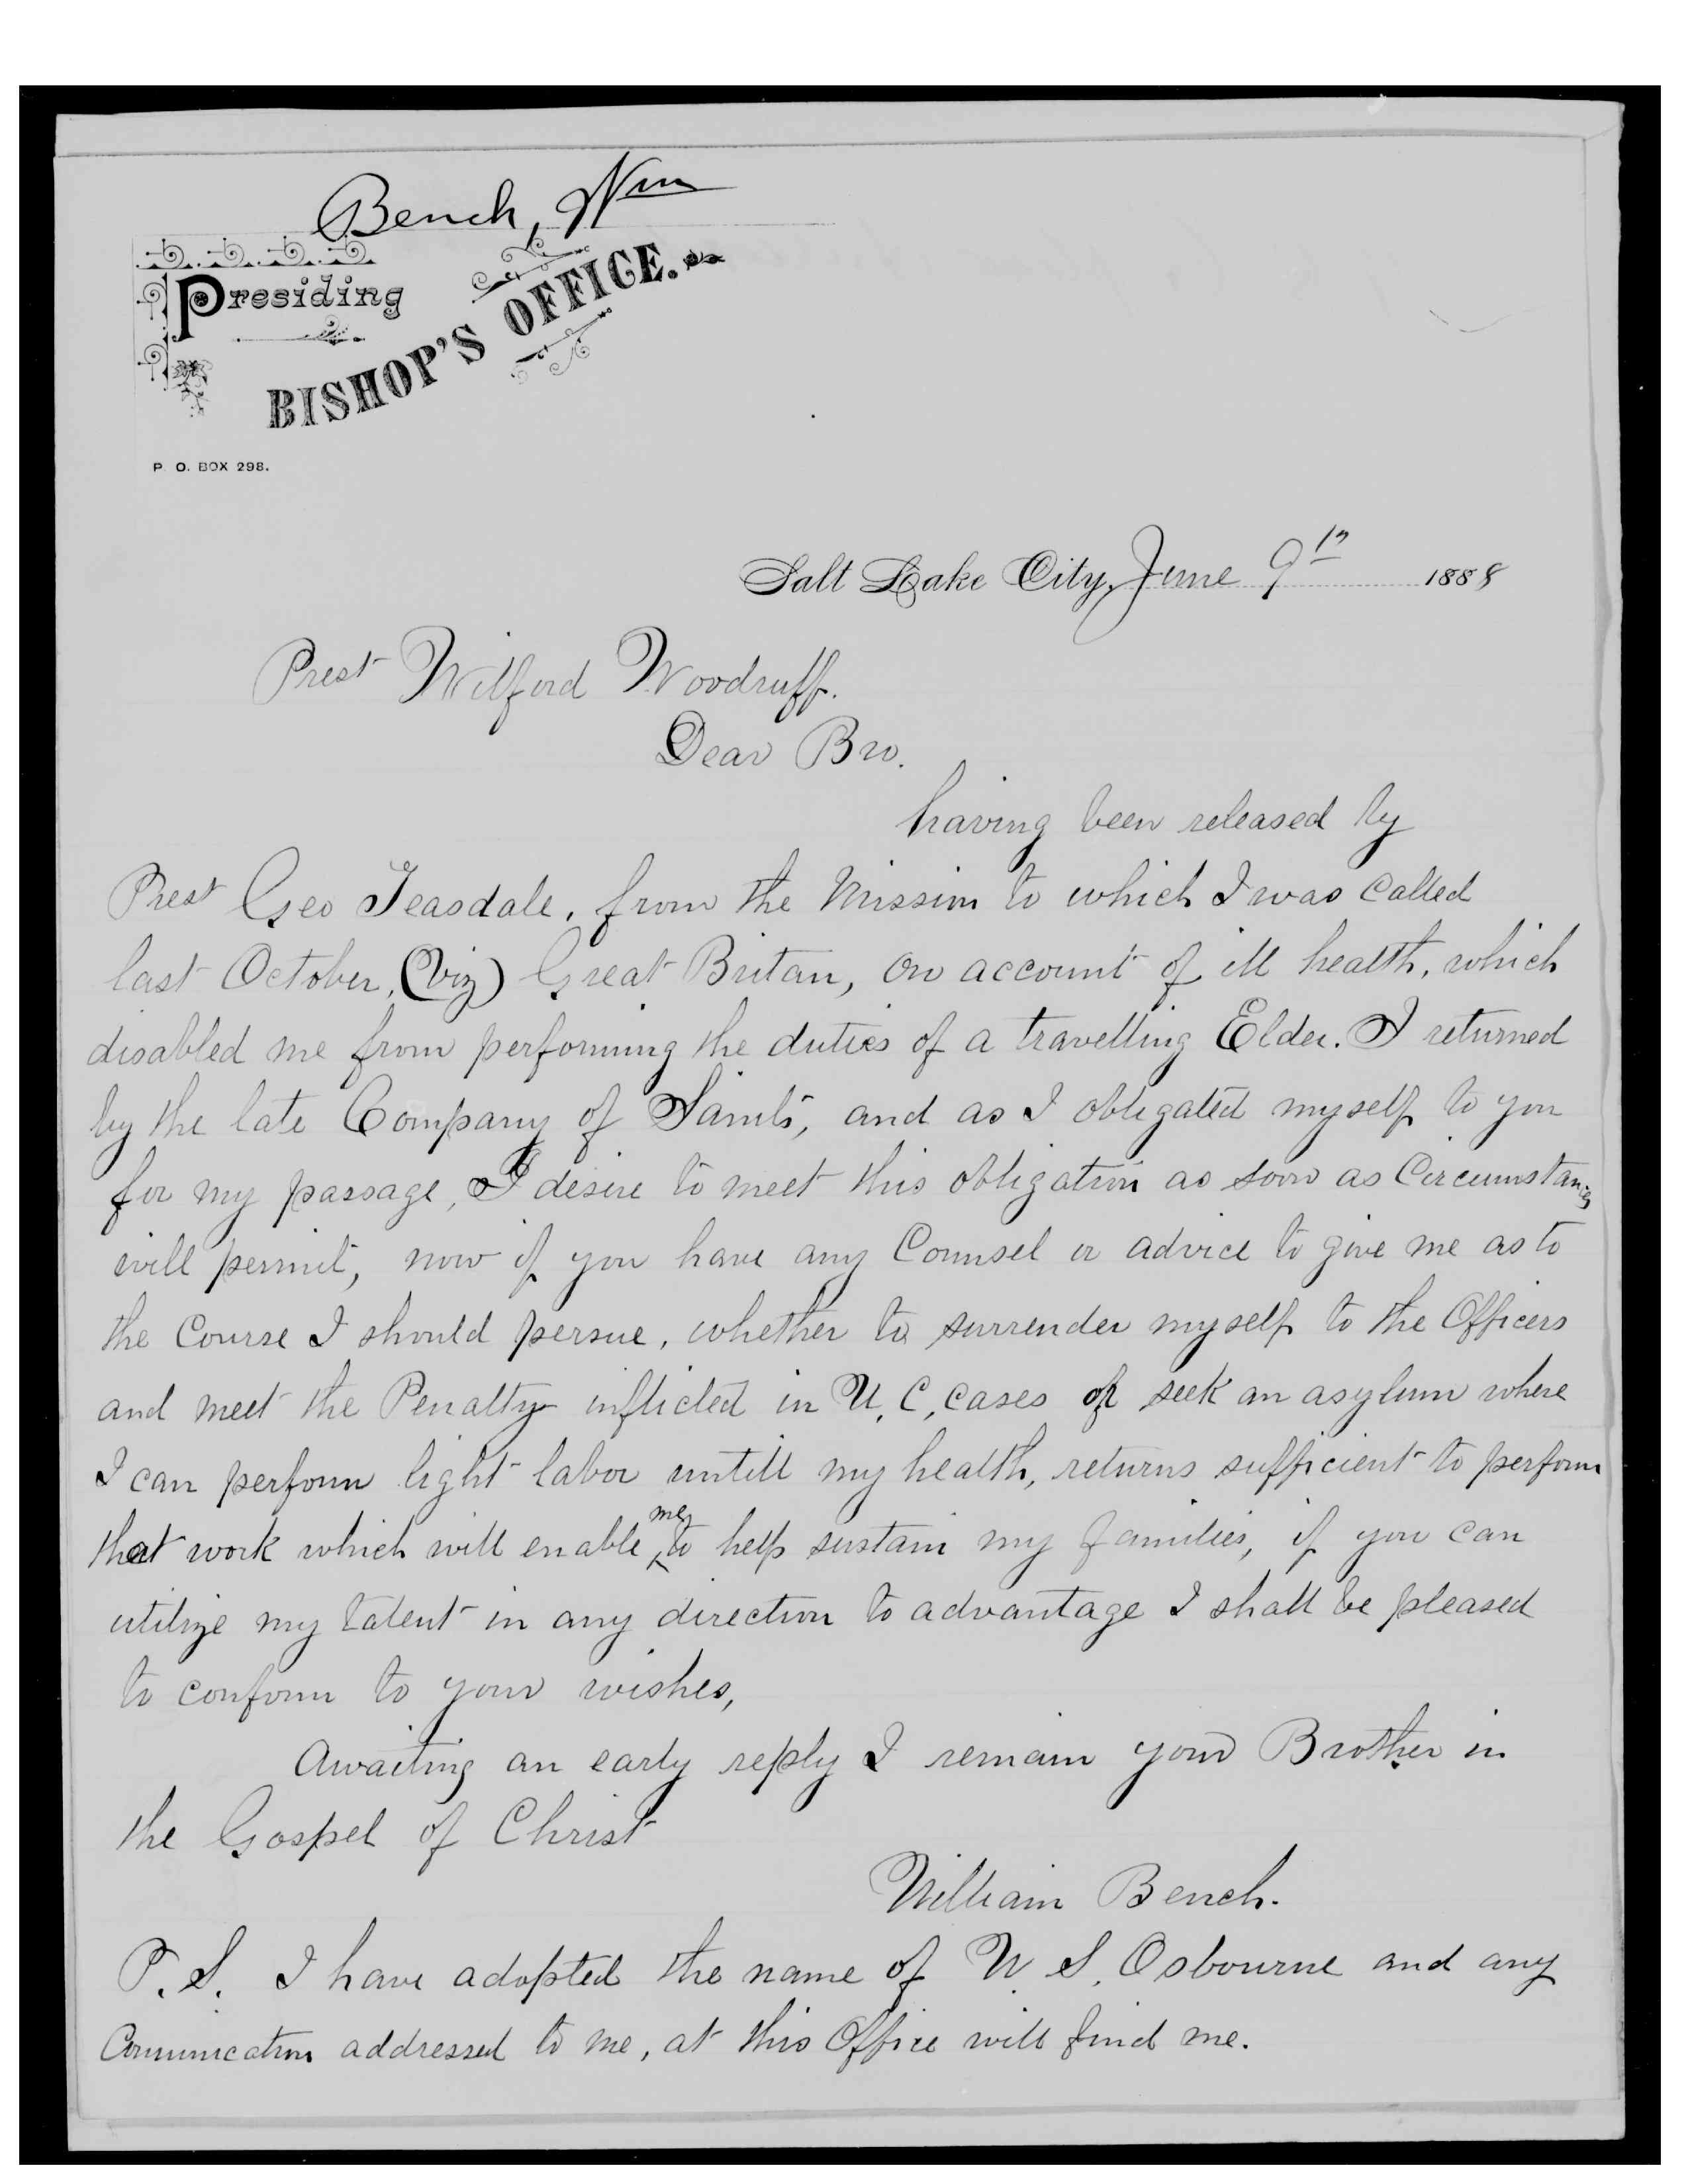 Bench, Wm
Presiding
BISHOP'S OFFICE.
P. O. BOX 298.
Salt Lake City, June 9th 1888
Prest Wilford Woodruff.
Dear Bro.
having been released by
Prest Geo Teasdale, from the Mission to which I was called
last October, (viz) Great Britan, on account of ill health, which
disabled me from performing the duties of a travelling Elder. I returned
by the late Company of Saints, and as I obligated myself to you
for my passage, I desire to meet this obligation as soon as Circumstances
will permit, now if you have any Counsel or advice to give me as to
the Course I should persue, whether to surrender myself to the Officers
and meet the Penalty inflicted in U. C. cases or seek an asylum where
I can perform light labor untill my health, returns sufficient to perform
that work which will enable me to help sustain my families, if you can
utilize my talent in any direction to advantage I shall be pleased
to conform to your wishes,
Awaiting an early reply I remain your Brother in
the Gospel of Christ
William Bench.
P.S. I have adopted the name of W. S. Osbourne and any
Comunication addressed to me, at this Office will find me.